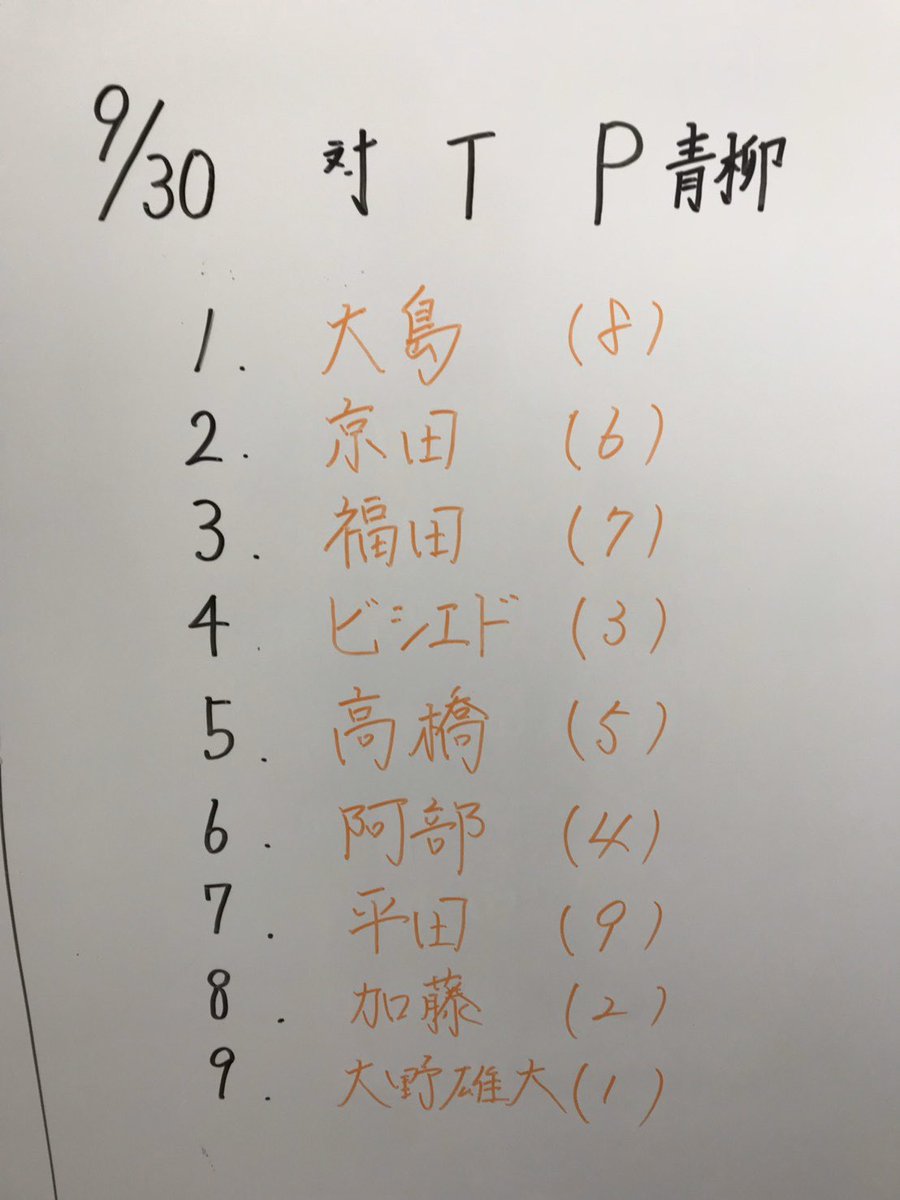 9/30 対 T P青柳
1. 大島 (8)
2. 京田 (6)
3. 福田 (7)
4. ビシエド (3)
5. 高橋 (5)
6. 阿部 (4)
7. 平田 (9)
8. 加藤 (2)
9. 大野雄大 (1)